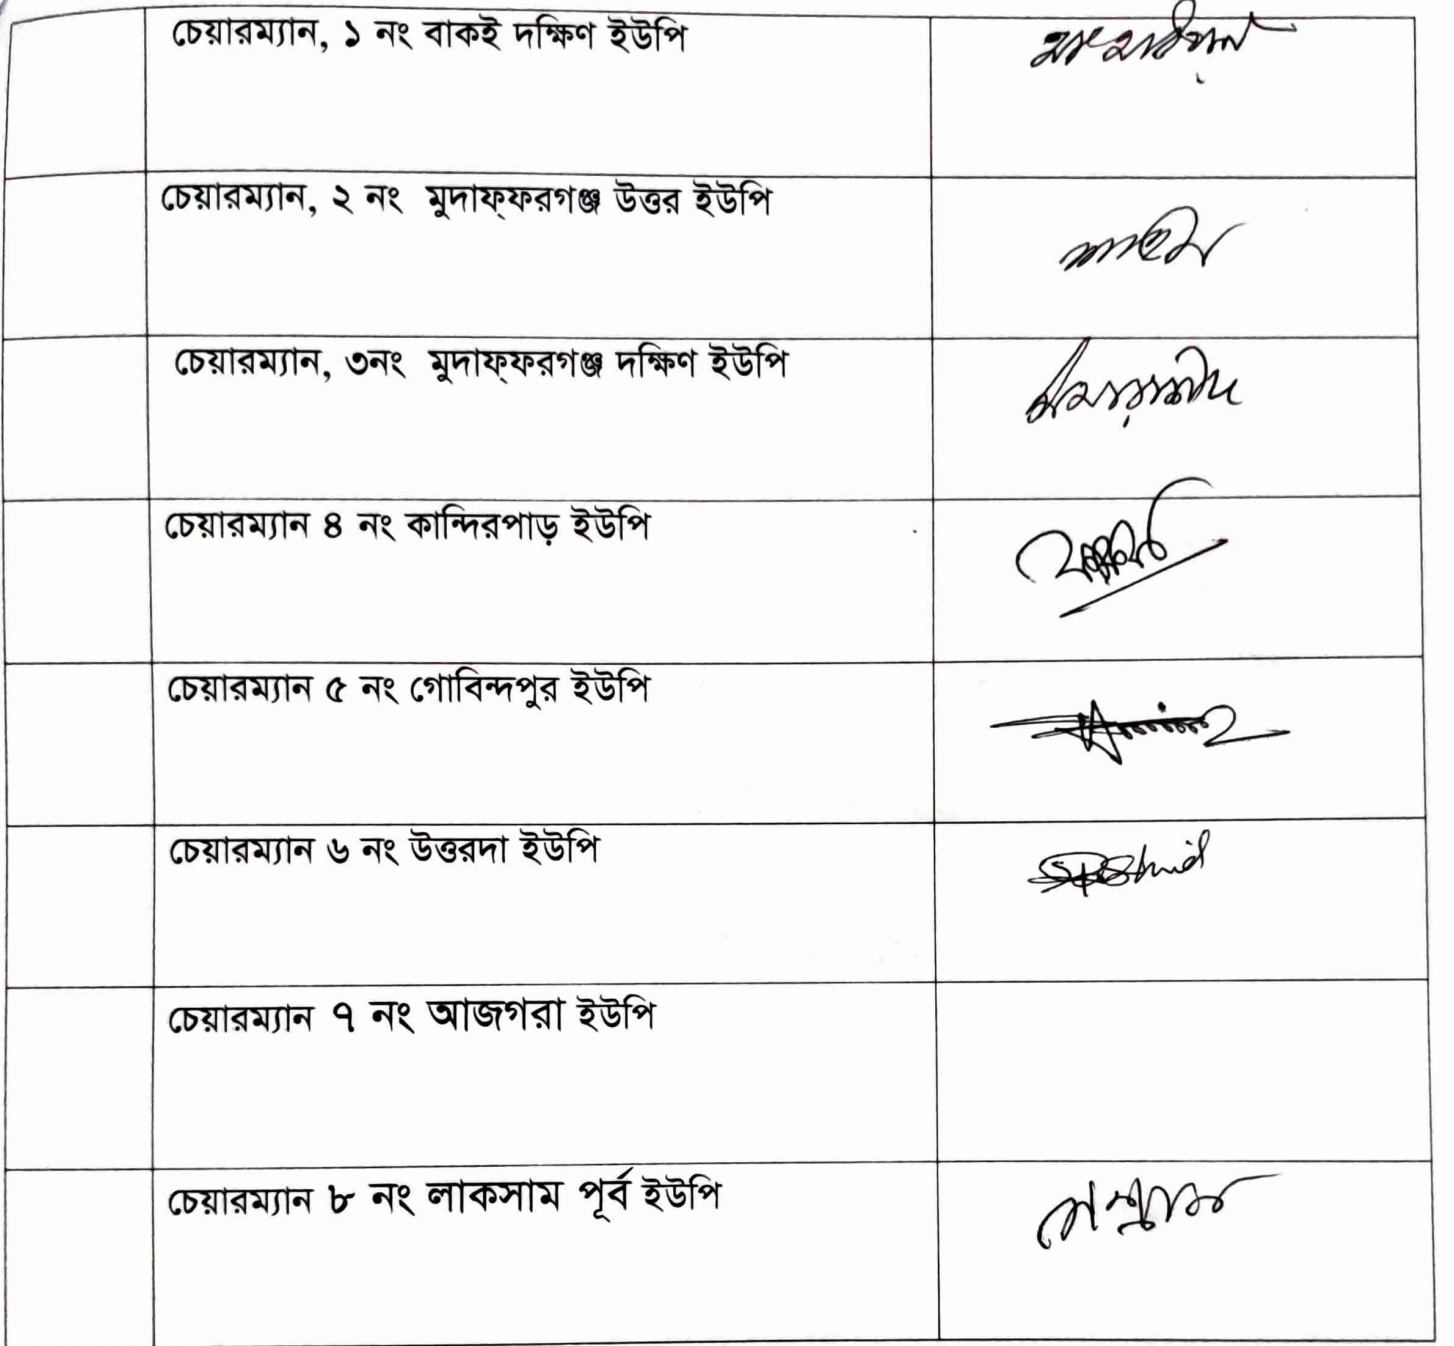 চেয়ারম্যান, ১ নং বাকই দক্ষিণ ইউপি
চেয়ারম্যান, ২ নং মুদাফ্ফরগঞ্জ উত্তর ইউপি
চেয়ারম্যান, ৩নং মুদাফ্ফরগঞ্জ দক্ষিণ ইউপি
চেয়ারম্যান ৪ নং কান্দিরপাড় ইউপি
চেয়ারম্যান ৫ নং গোবিন্দপুর ইউপি
চেয়ারম্যান ৬ নং উত্তরদা ইউপি
চেয়ারম্যান ৭ নং আজগরা ইউপি
চেয়ারম্যান ৮ নং লাকসাম পূর্ব ইউপি